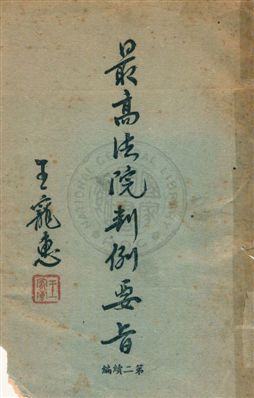 最高法院判例要旨
王寵惠
第二續編
NATIONAL CENTRAL LIBRARY